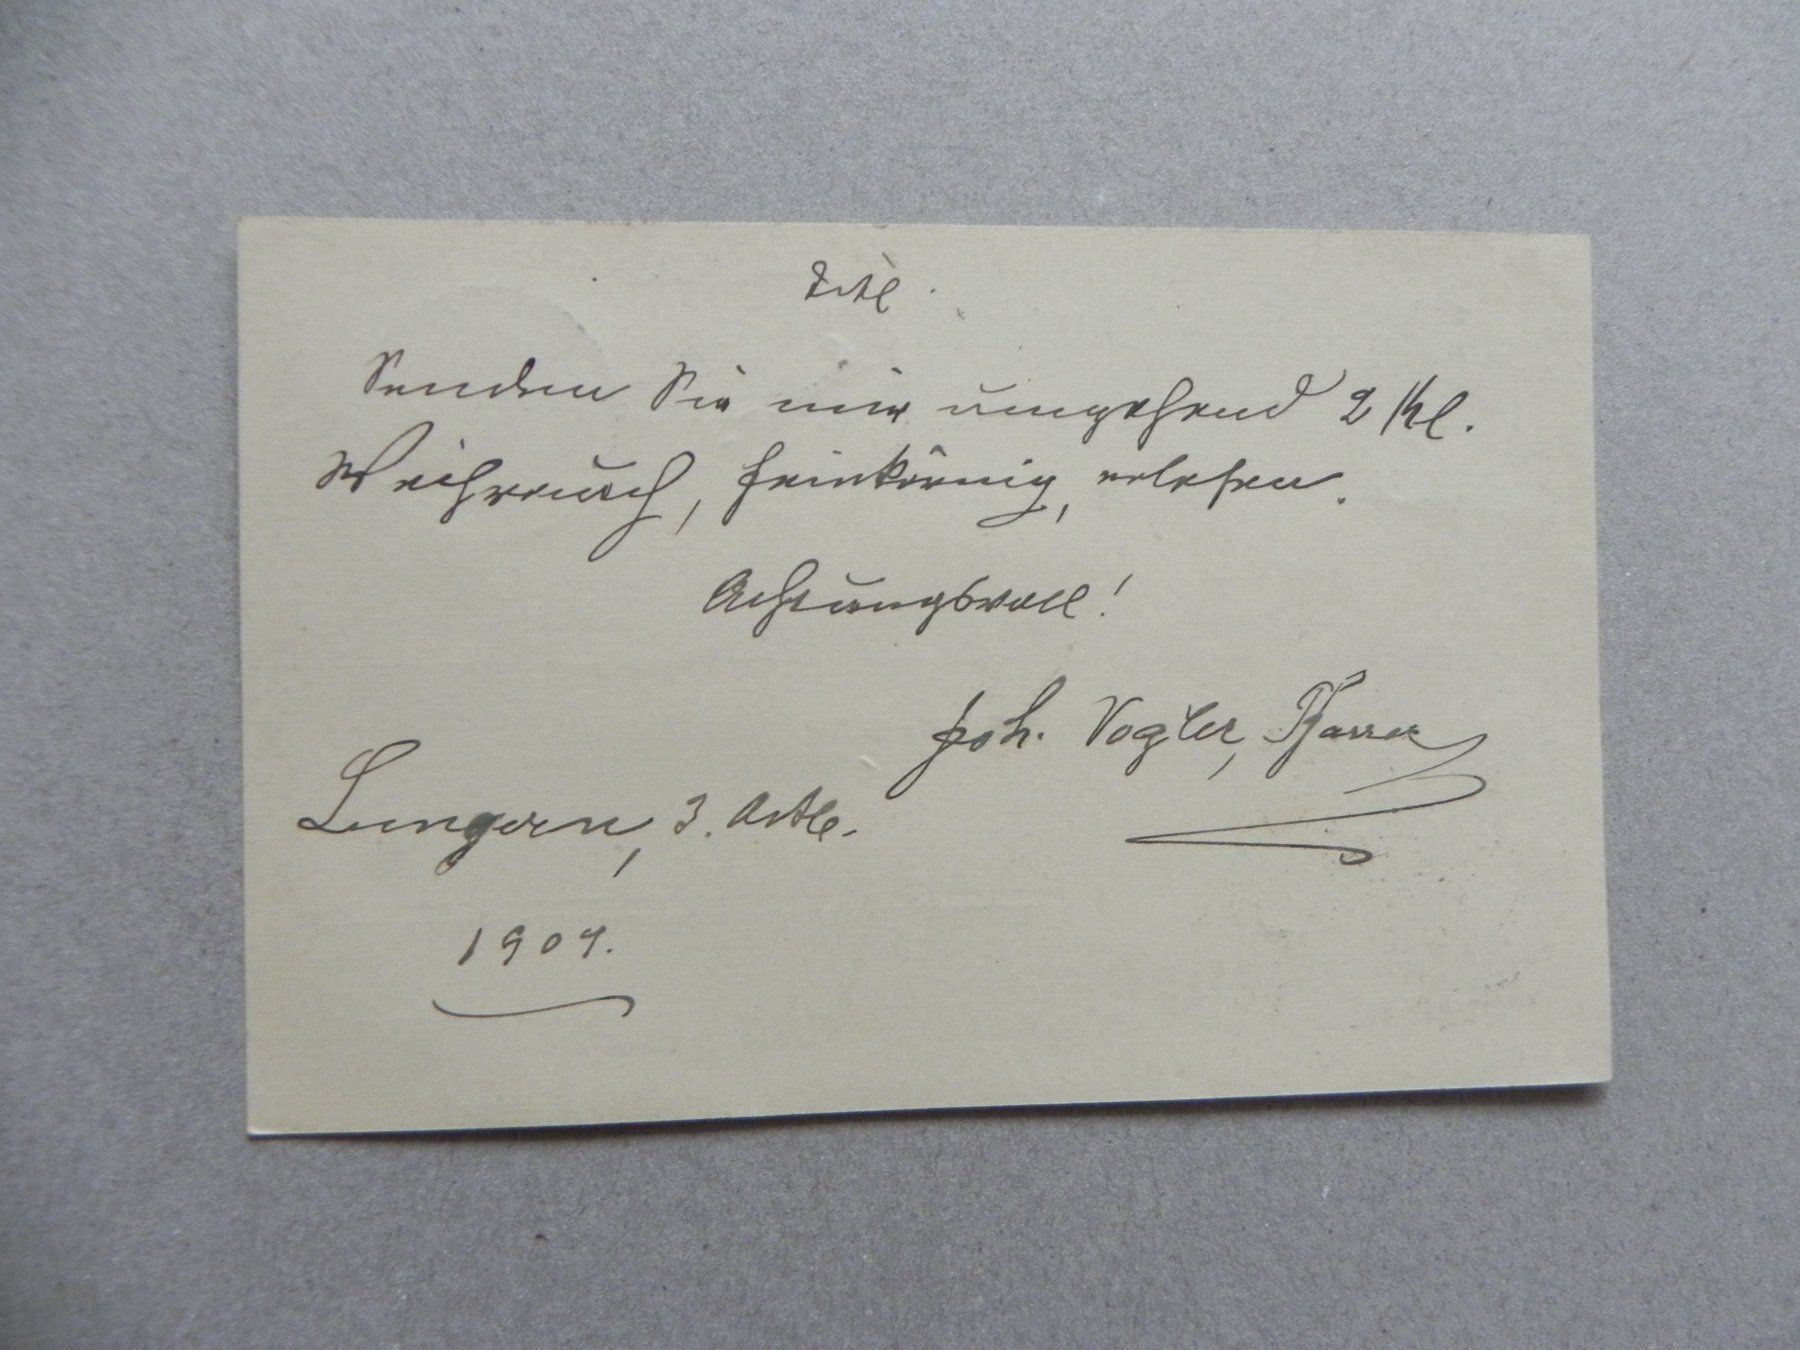 Titl.
Senden Sie mir umgehend 2 Kl.
Weihrauch, feinkörnig, erlesen.
Achtungsvoll!
Joh. Vogler, Pfarrer
Lungern, 3. Octb.
1909.